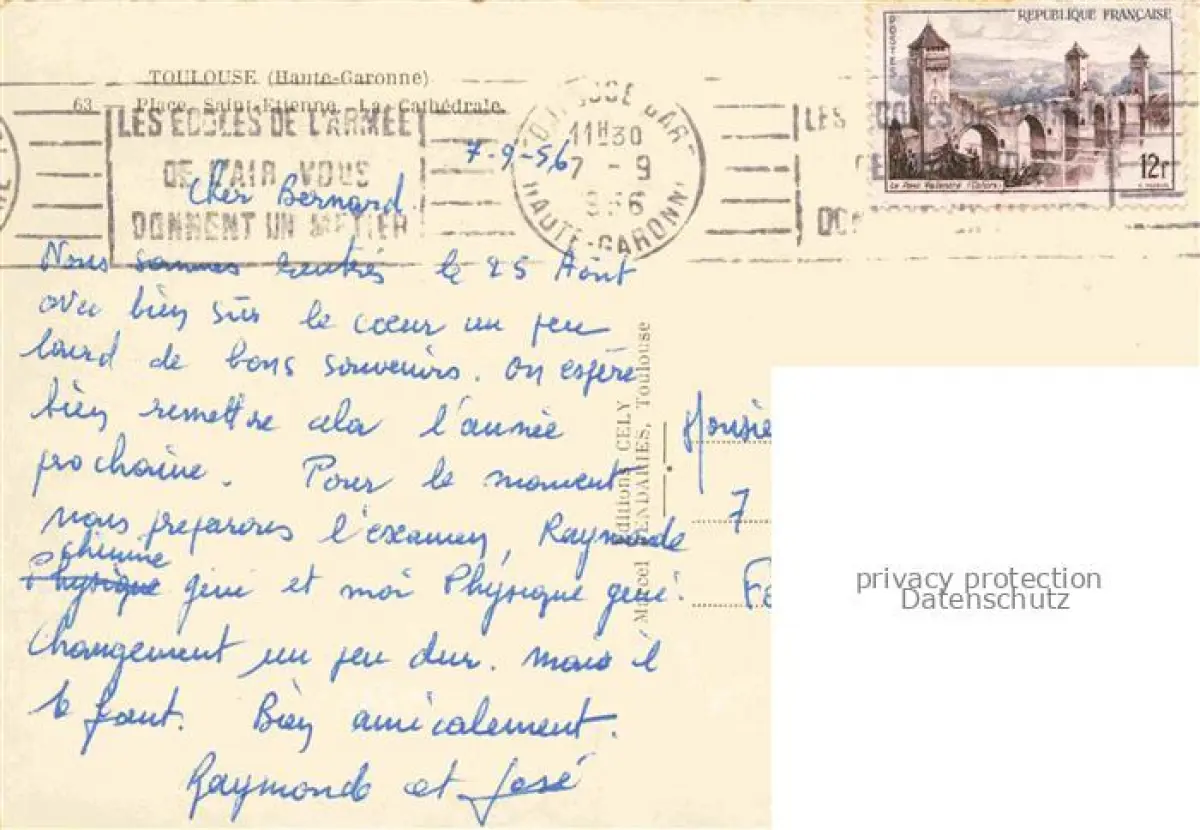 REPUBLIQUE FRANÇAISE
POSTES
Le Pont Valentré (Cahors)
12f
TOULOUSE (Haute-Garonne)
63 — Place Saint-Etienne. La Cathédrale.
LES ECOLES DE L'ARMEE
DE L'AIR VOUS
DONNENT UN METIER
TOULOUSE GARE
11H30
7 - 9
1956
HAUTE-GARONNE
LES ECOLES
DE
DON
7-9-56
Cher Bernard.
Nous sommes rentrés le 25 Août
avec bien sûr le cœur un peu
lourd de bons souvenirs. On espère
bien remettre cela l'année
prochaine. Pour le moment
nous préparons l'examen, Raymonde
chimie
Physique géné et moi Physique géné.
Changement un peu dur. mais il
le faut. Bien amicalement.
Raymonde et José
Editions CELY
Marcel PENDARIES, Toulouse
Monsie
7
Fe
privacy protection
Datenschutz